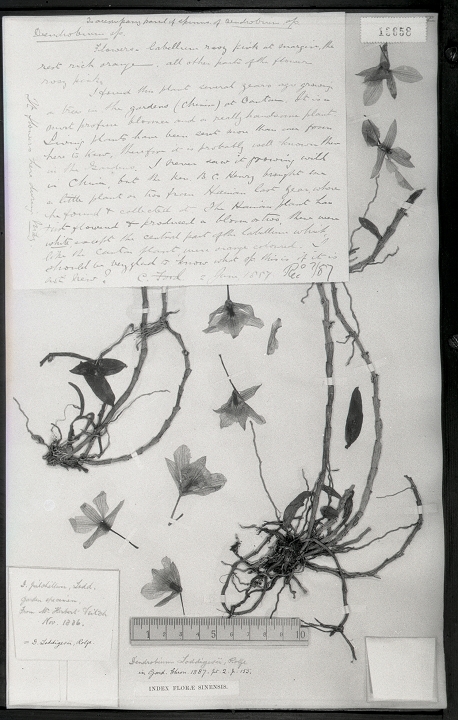 To accompany parcel of specimens of Dendrobium sp.
13953
Dendrobium sp.
Flowers: Labellum rosy pink at margin, the
rest rich orange, all other parts of the flower
rosy pink.
I found this plant several years ago growing
on a tree in the gardens (Chinese) at Canton. It is a
most profuse bloomer and a really handsome plant.
Living plants have been sent more than once from
here to Kew, therefore it is probably well known there
in the Gardens. I never saw it growing wild
in China, but the Rev. B. C. Henry brought me
a little plant or two from Hainan last year where
he found & collected it. The Hainan plant has
just flowered & produced a bloom or two, these were
white except the central part of the labellum which,
like the Canton plant, was orange coloured. I
should be very glad to know what sp. this is if it is
not new?
C. Ford 2, June 1887 Rec 7/87
It flowers here during
D. pulchellum, Lodd.
garden specimen
from Mr. Herbert Veitch
Nov. 1886.
= D. Loddigesii, Rolfe
1 2 3 4 5 6 7 8 9 10
Dendrobium Loddigesii, Rolfe
in Gard. Chron. 1887. pt. 2. p. 155.
INDEX FLORÆ SINENSIS.